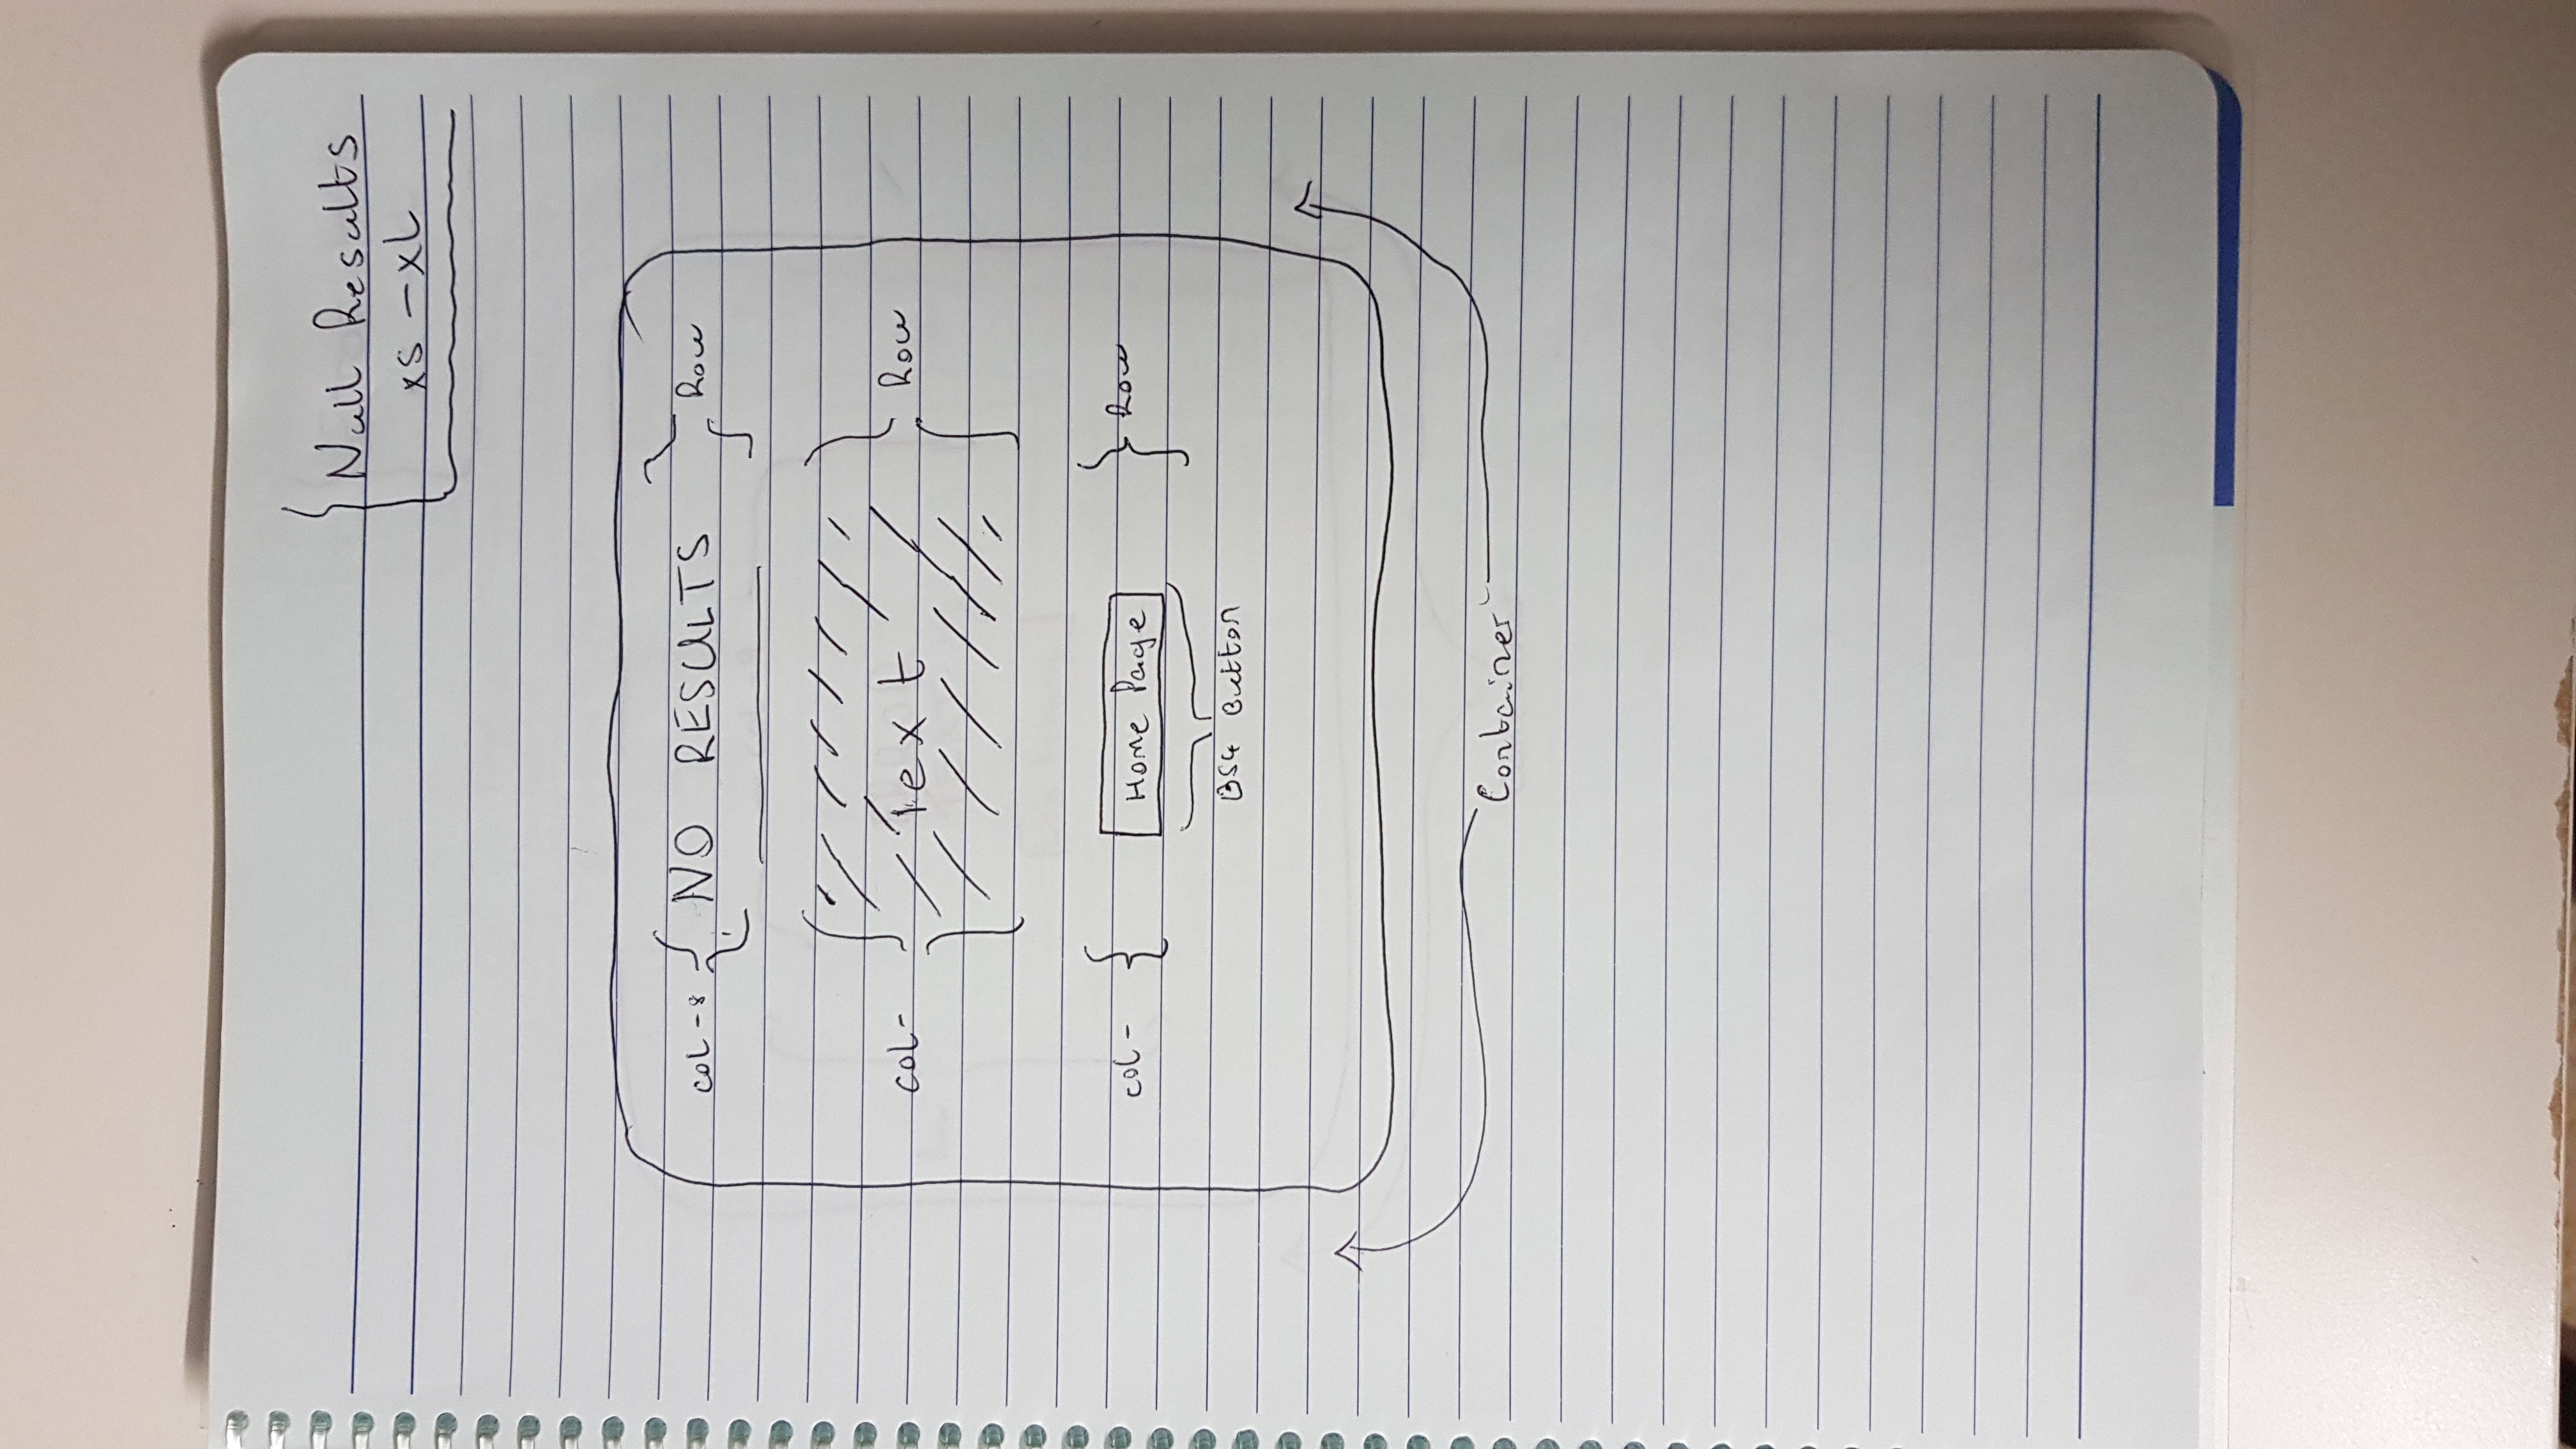 Null Results
xs - xL
col-8 { NO RESULTS } Row
col- { Text } Row
col- { Home Page } Row
BS4 Button
Container